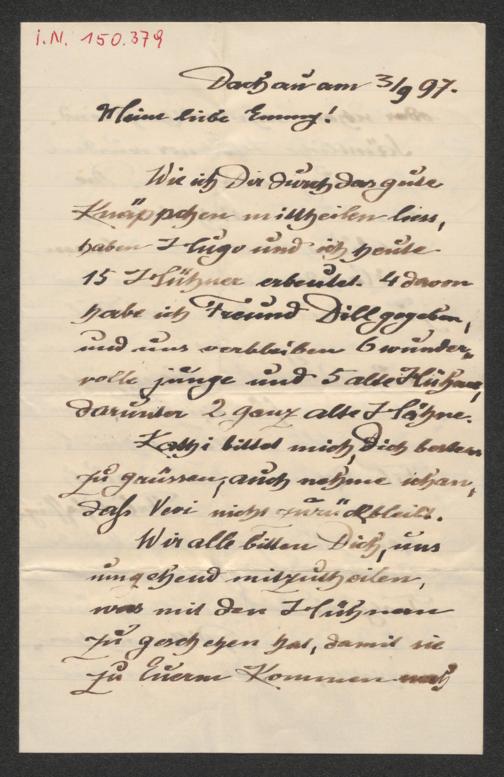 I.N. 150.379
Dachau am 3/9 97.
Meine liebe Emmy!
Wie ich Dir durch das gute
Knäppchen mittheilen liess,
haben Hugo und ich heute
15 Hühner erbeutet. 4 davon
habe ich Freund Dill gegeben,
und uns verbleiben 6 wunder-
volle junge und 5 alte Hühner,
darunter 2 ganz alte Hähne.
Kathi bittet mich, Dich bestens
zu grüssen, auch nehme ich an,
daß Veri nicht zurückbleibt.
Wir alle bitten Dich, uns
umgehend mitzutheilen,
was mit den Hühnern
zu geschehen hat, damit sie
zu Euerm Kommen noch